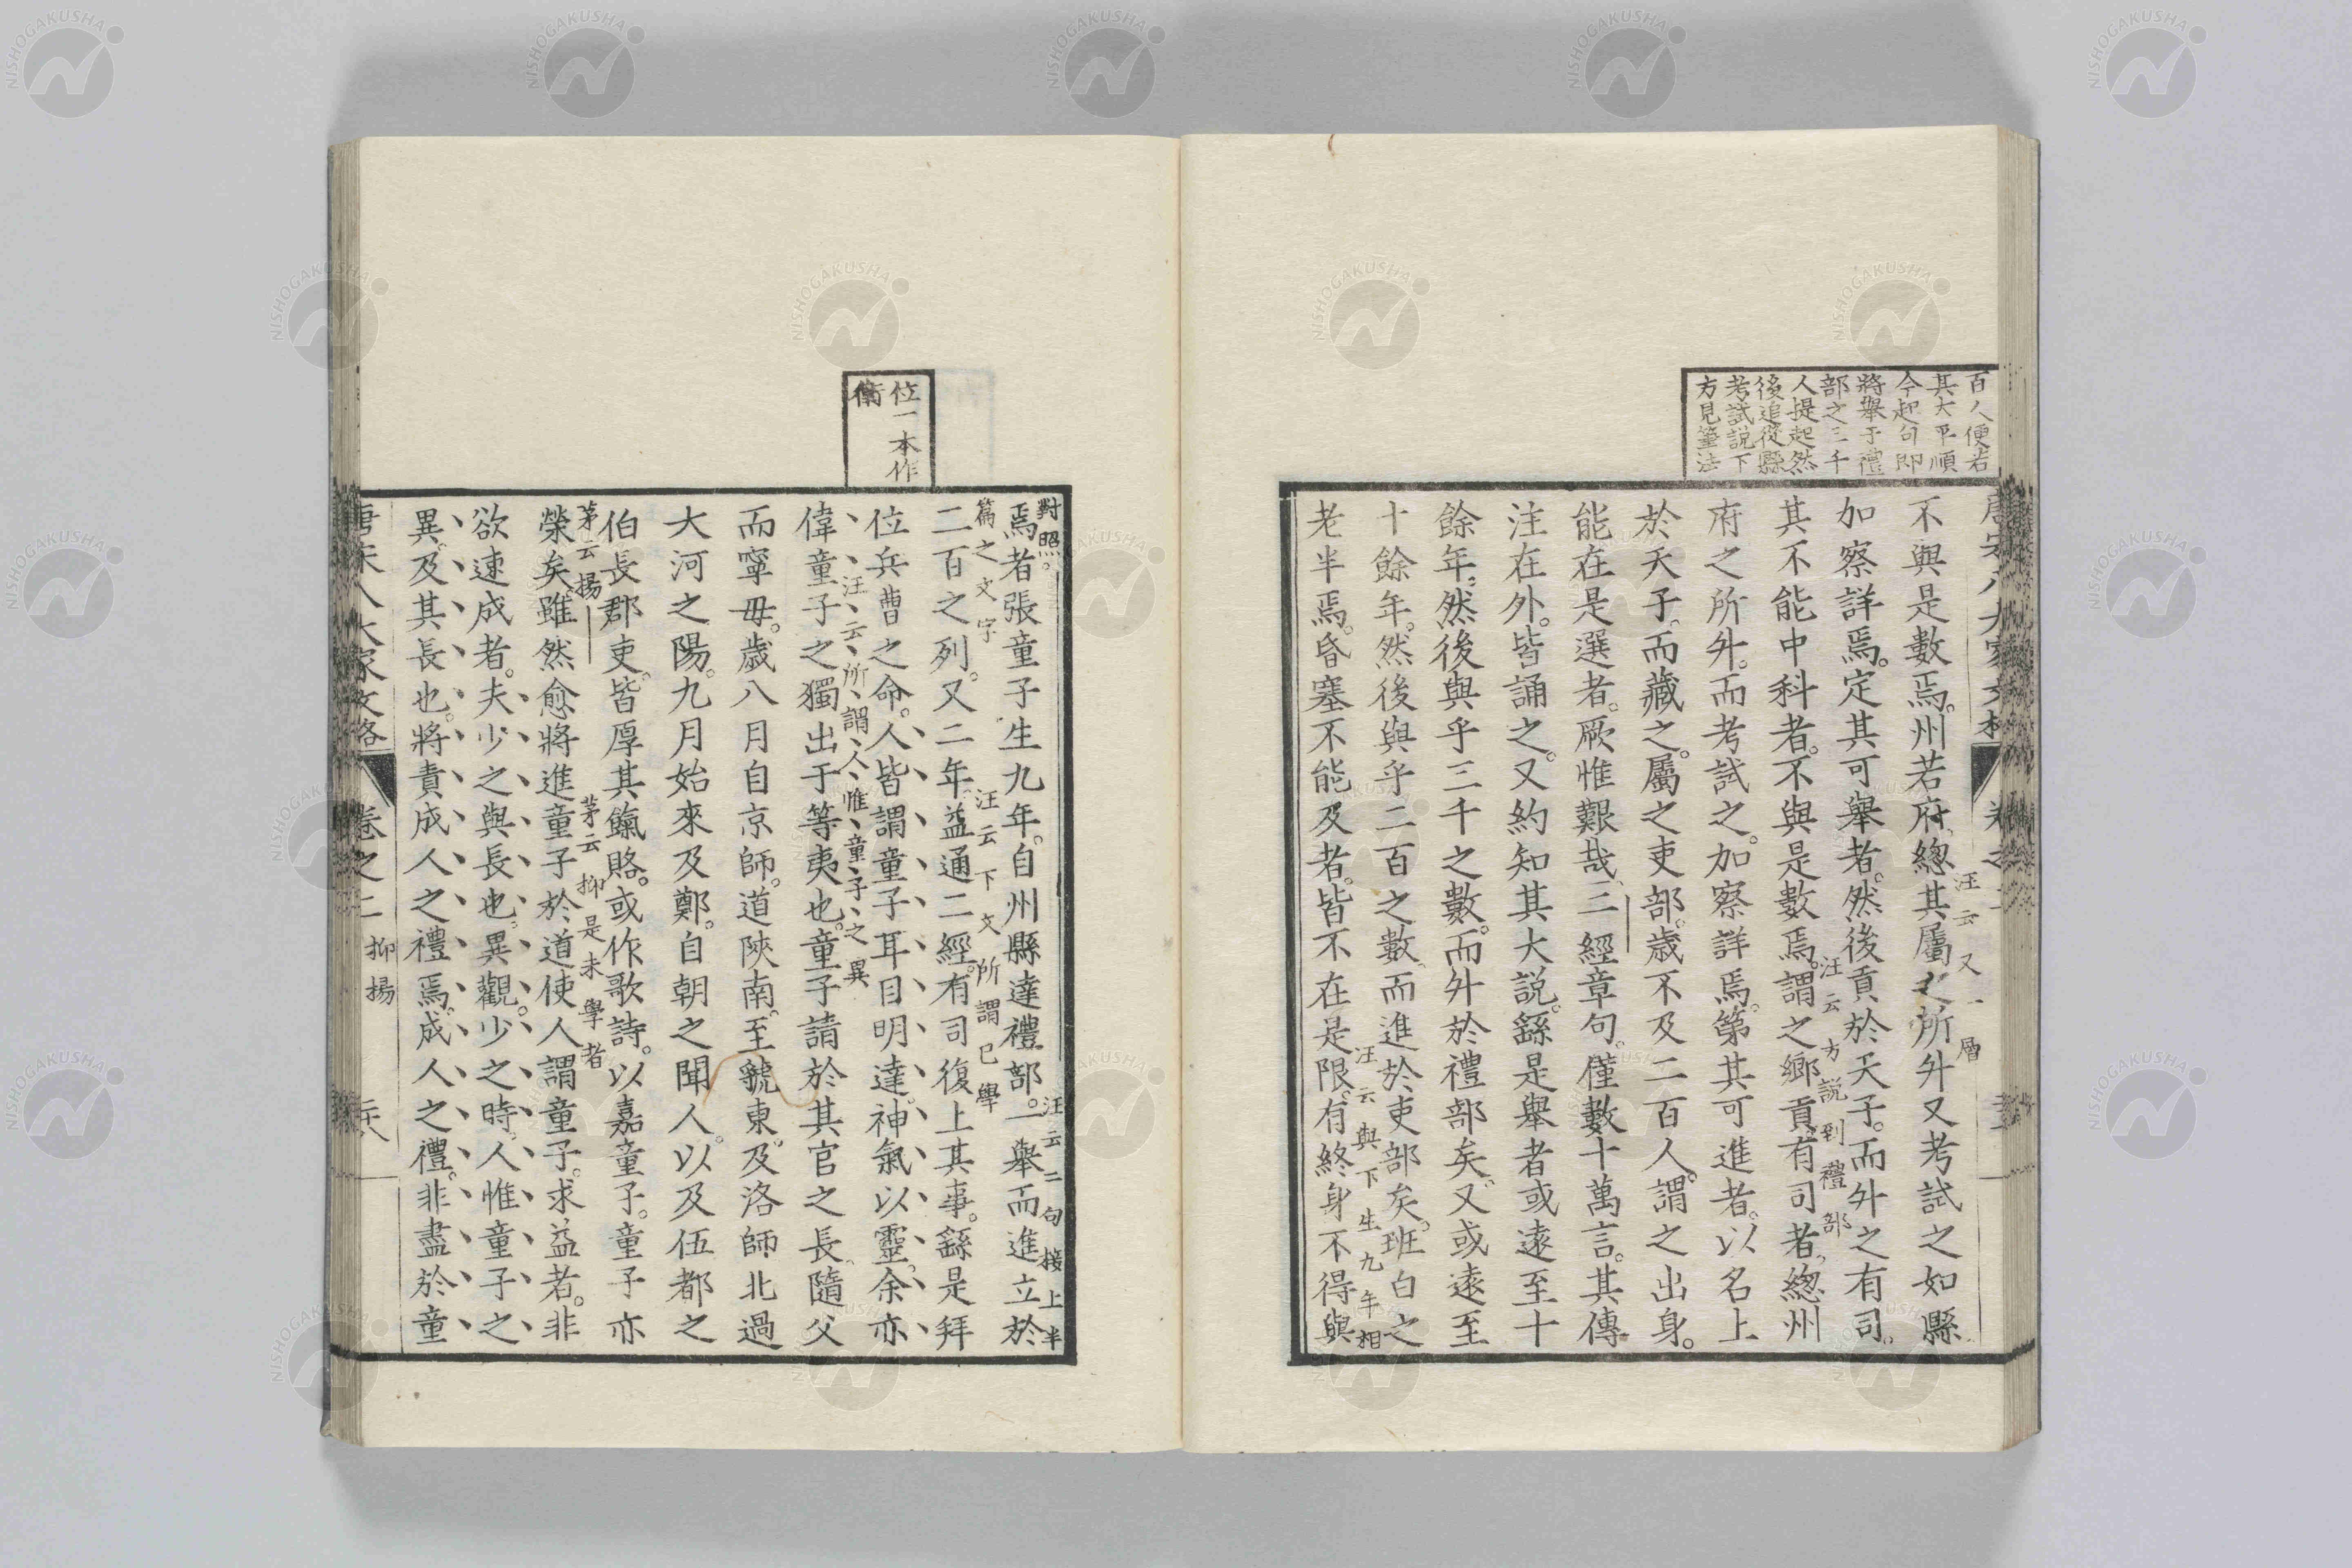 百人便若
其大平順
今起句即
將舉于禮
部之三千
人提起然
後追從縣
考試說下
方見筆法
不與是數焉。州若府、總其屬之所升又考試之如縣
汪云又一層
加察詳焉。定其可舉者。然後貢於天子。而升之有司。
汪云方説到禮部
其不能中科者。不與是數焉。謂之鄉貢。有司者、總州
府之所升。而考試之。加察詳焉。第其可進者。以名上
於天子。而藏之。屬之吏部。歲不及二百人。謂之出身。
能在是選者。厥惟艱哉、三經章句。僅數十萬言。其傳
注在外。皆誦之。又約知其大説。繇是舉者或遠至十
餘年。然後與乎三千之數。而升於禮部矣。又或遠至
十餘年。然後與乎二百之數、而進於吏部矣。班白之
汪云與下生九年相
老半焉。昏塞不能及者。皆不在是限。有終身不得與
位一本作
衛
對照。
焉者張童子生九年。自州縣達禮部。一舉而進立於
汪云二句接上半
篇之文字
二百之列。又二年。益通二經。有司復上其事。繇是拜
汪云下文所謂已學
位兵曹之命。人皆謂童子耳目明達。神氣以靈。余亦
汪云所謂人惟童子之異
偉童子之獨出于等夷也。童子請於其官之長、隨父
而寧母。歲八月自京師。道陜南。至虢東。及洛師北過
大河之陽。九月始來及鄭。自朝之聞人。以及伍都之
伯長郡吏。皆厚其餼賂。或作歌詩。以嘉童子。童子亦
茅云揚
茅云抑是未學者
榮矣。雖然愈將進童子於道使人謂童子。求益者。非
欲速成者。夫少之與長也。異觀。少之時。人惟童子之
異。及其長也。將責成人之禮焉。成人之禮。非盡於童
唐宋八大家文格
卷之二 抑揚
二十八